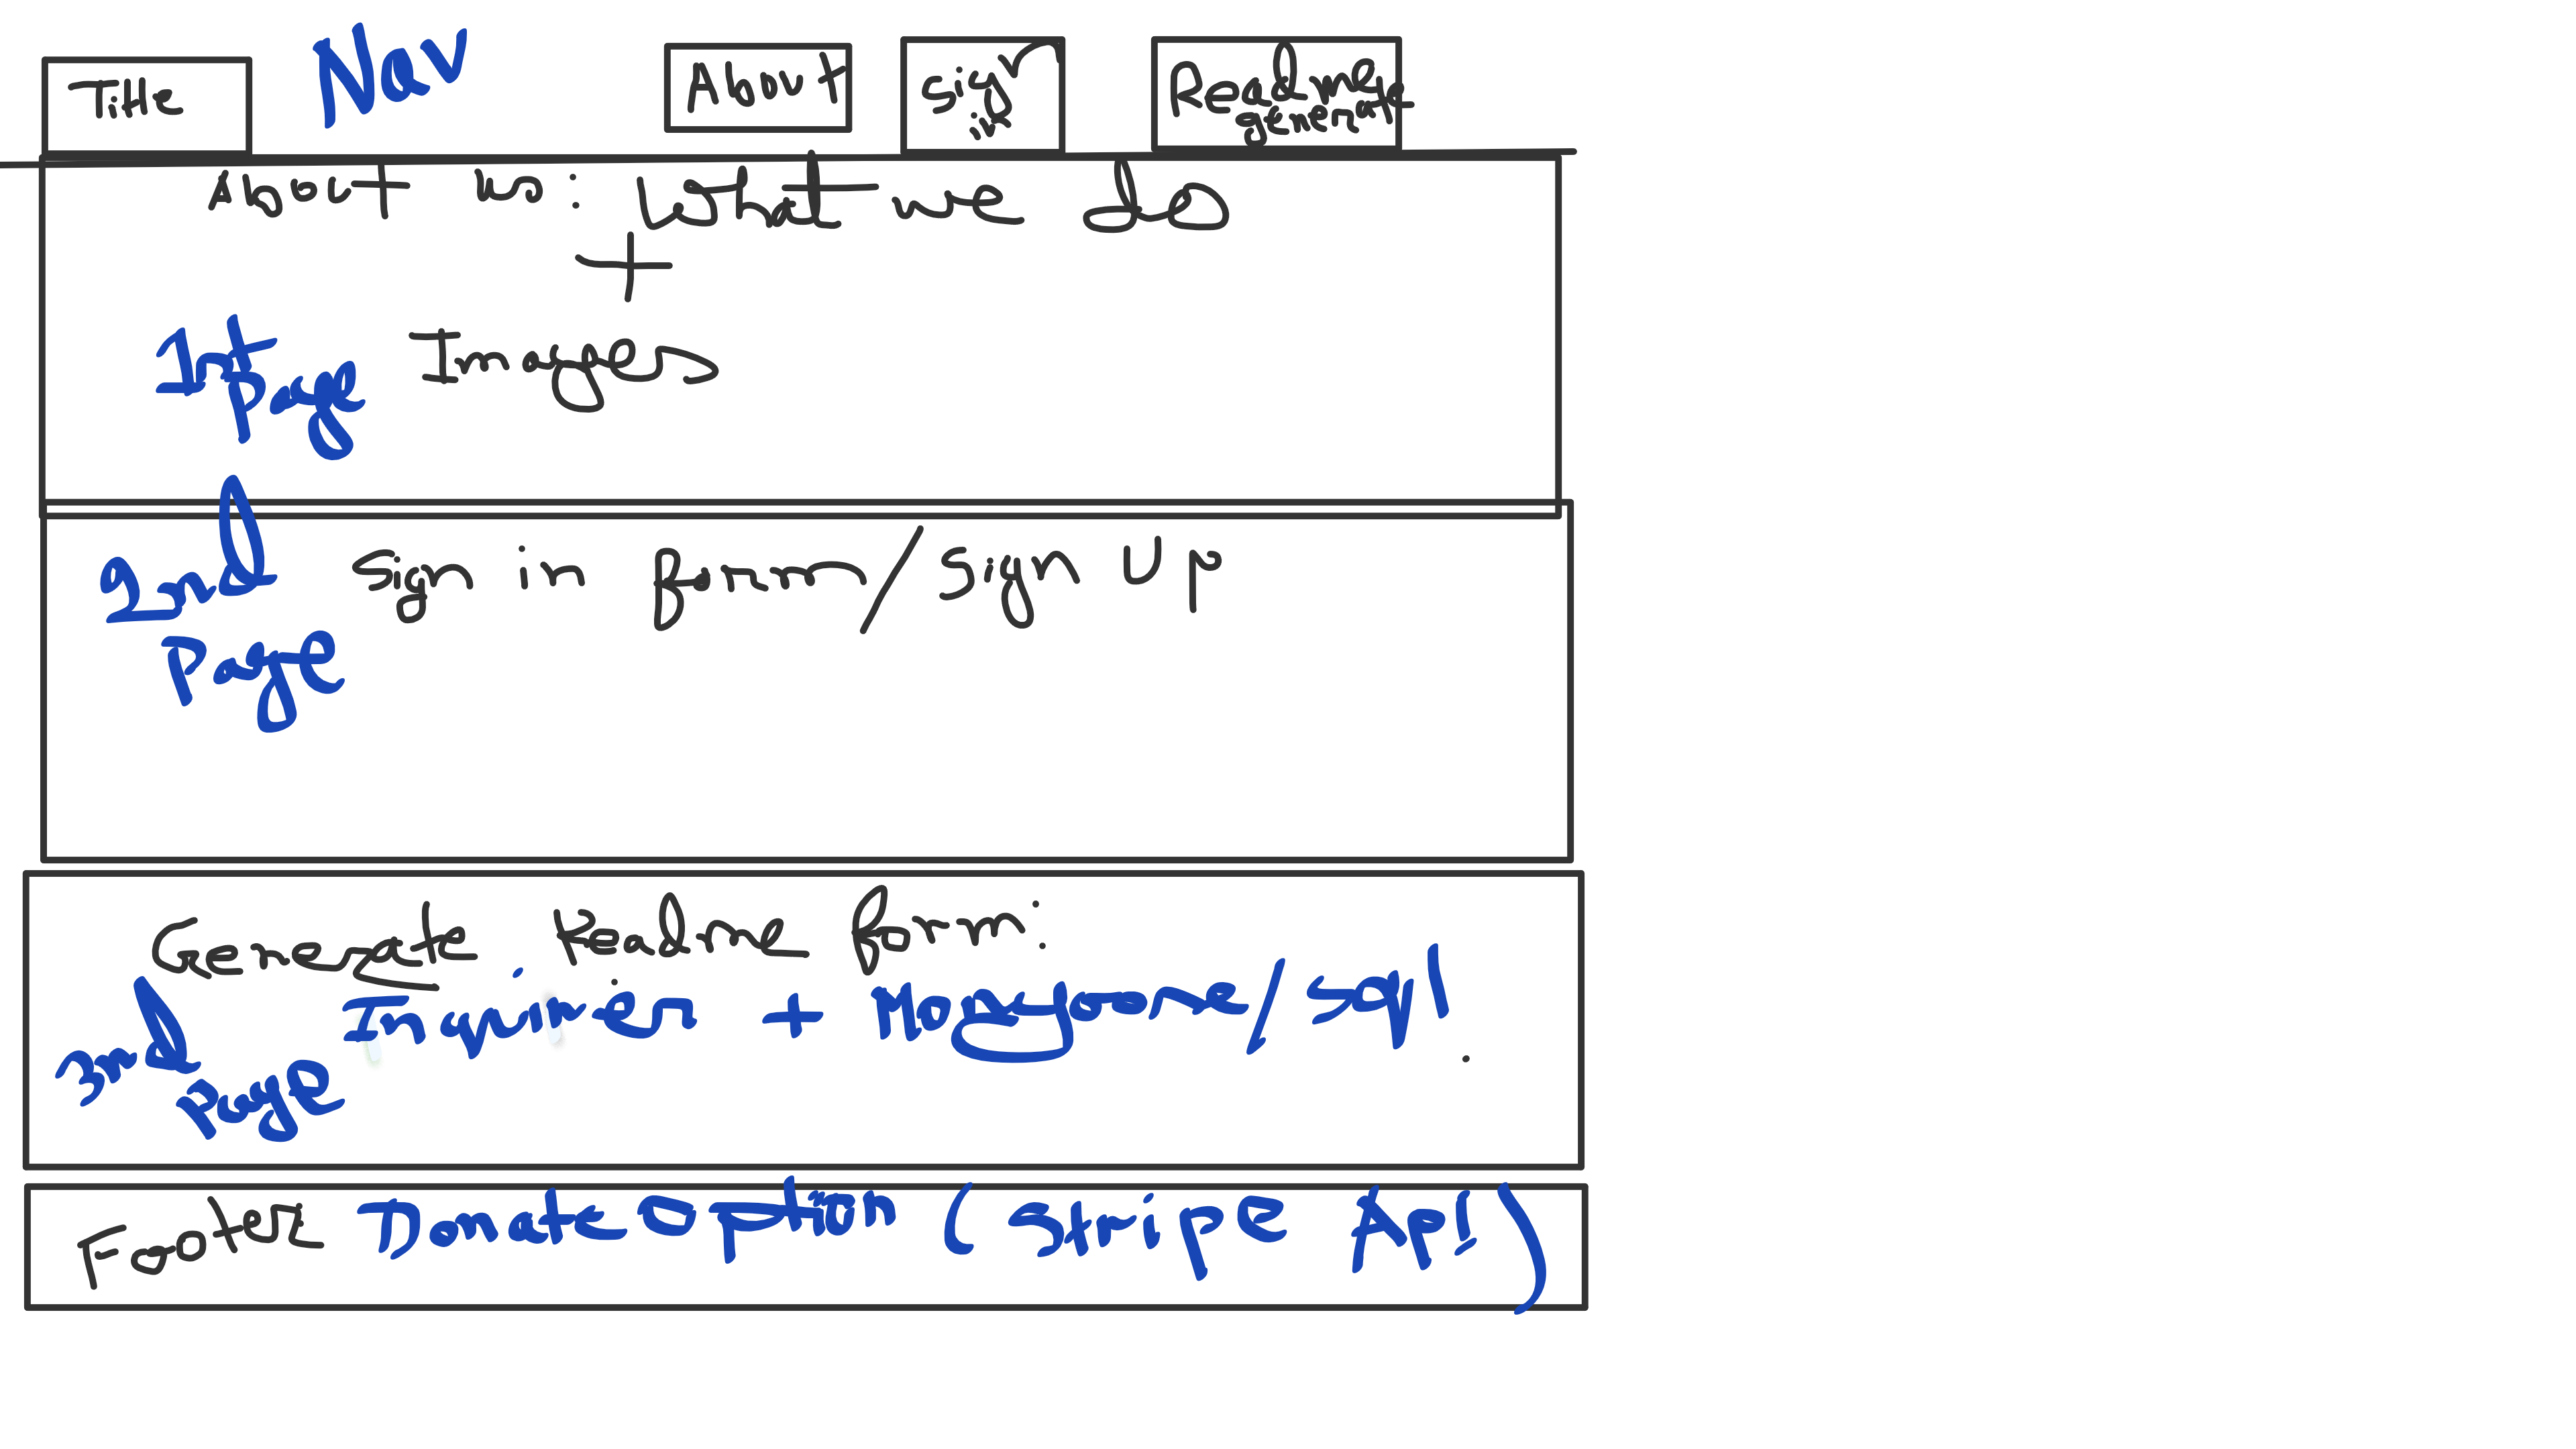 Title Nav About Sign in Readme generate
About us: What we do
+
1st Page Images
2nd Page Sign in form/sign up
Generate Readme form:
3rd Page Inquirer + Mongoose/sql.
Footer Donate Option (Stripe Api)